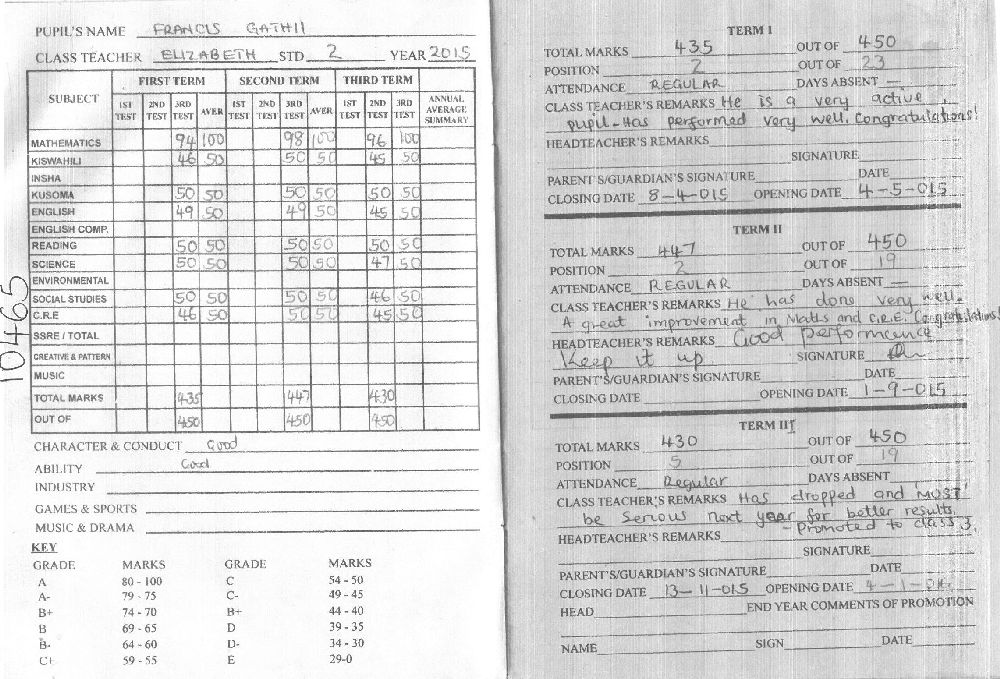 PUPIL'S NAME FRANCIS GATHII
CLASS TEACHER ELIZABETH STD. 2 YEAR 2015
SUBJECT FIRST TERM SECOND TERM THIRD TERM
1ST TEST 2ND TEST 3RD TEST AVER 1ST TEST 2ND TEST 3RD TEST AVER 1ST TEST 2ND TEST 3RD TEST ANNUAL AVERAGE SUMMARY
MATHEMATICS 94 100 98 100 96 100
KISWAHILI 46 50 50 50 45 50
INSHA
KUSOMA 50 50 50 50 50 50
ENGLISH 49 50 49 50 45 50
ENGLISH COMP.
READING 50 50 50 50 50 50
SCIENCE 50 50 50 50 47 50
ENVIRONMENTAL
SOCIAL STUDIES 50 50 50 50 46 50
C.R.E 46 50 50 50 45 50
SSRE / TOTAL
CREATIVE & PATTERN
MUSIC
TOTAL MARKS 435 447 430
OUT OF 450 450 450
10465
CHARACTER & CONDUCT Good
ABILITY Good
INDUSTRY
GAMES & SPORTS
MUSIC & DRAMA
KEY
GRADE MARKS GRADE MARKS
A 80 - 100 C 54 - 50
A- 79 - 75 C- 49 - 45
B+ 74 - 70 B+ 44 - 40
B 69 - 65 D 39 - 35
B- 64 - 60 D- 34 - 30
C+ 59 - 55 E 29-0
TERM I
TOTAL MARKS 435 OUT OF 450
POSITION 2 OUT OF 23
ATTENDANCE REGULAR DAYS ABSENT —
CLASS TEACHER'S REMARKS He is a very active
pupil-Has performed very well. Congratulations!
HEADTEACHER'S REMARKS
SIGNATURE
PARENT'S/GUARDIAN'S SIGNATURE DATE
CLOSING DATE 8-4-015 OPENING DATE 4-5-015
TERM II
TOTAL MARKS 447 OUT OF 450
POSITION 2 OUT OF 19
ATTENDANCE REGULAR DAYS ABSENT —
CLASS TEACHER'S REMARKS He has done very well.
A great improvement in Maths and C.R.E. Congratulations!
HEADTEACHER'S REMARKS Good performance
Keep it up SIGNATURE
PARENT'S/GUARDIAN'S SIGNATURE DATE
CLOSING DATE OPENING DATE 1-9-015
TERM III
TOTAL MARKS 430 OUT OF 450
POSITION 5 OUT OF 19
ATTENDANCE Regular DAYS ABSENT
CLASS TEACHER'S REMARKS Has dropped and MUST
be serious next year for better results.
- Promoted to class 3.
HEADTEACHER'S REMARKS
SIGNATURE
PARENT'S/GUARDIAN'S SIGNATURE DATE
CLOSING DATE 13-11-015 OPENING DATE 4-1-
HEAD END YEAR COMMENTS OF PROMOTION
NAME SIGN DATE